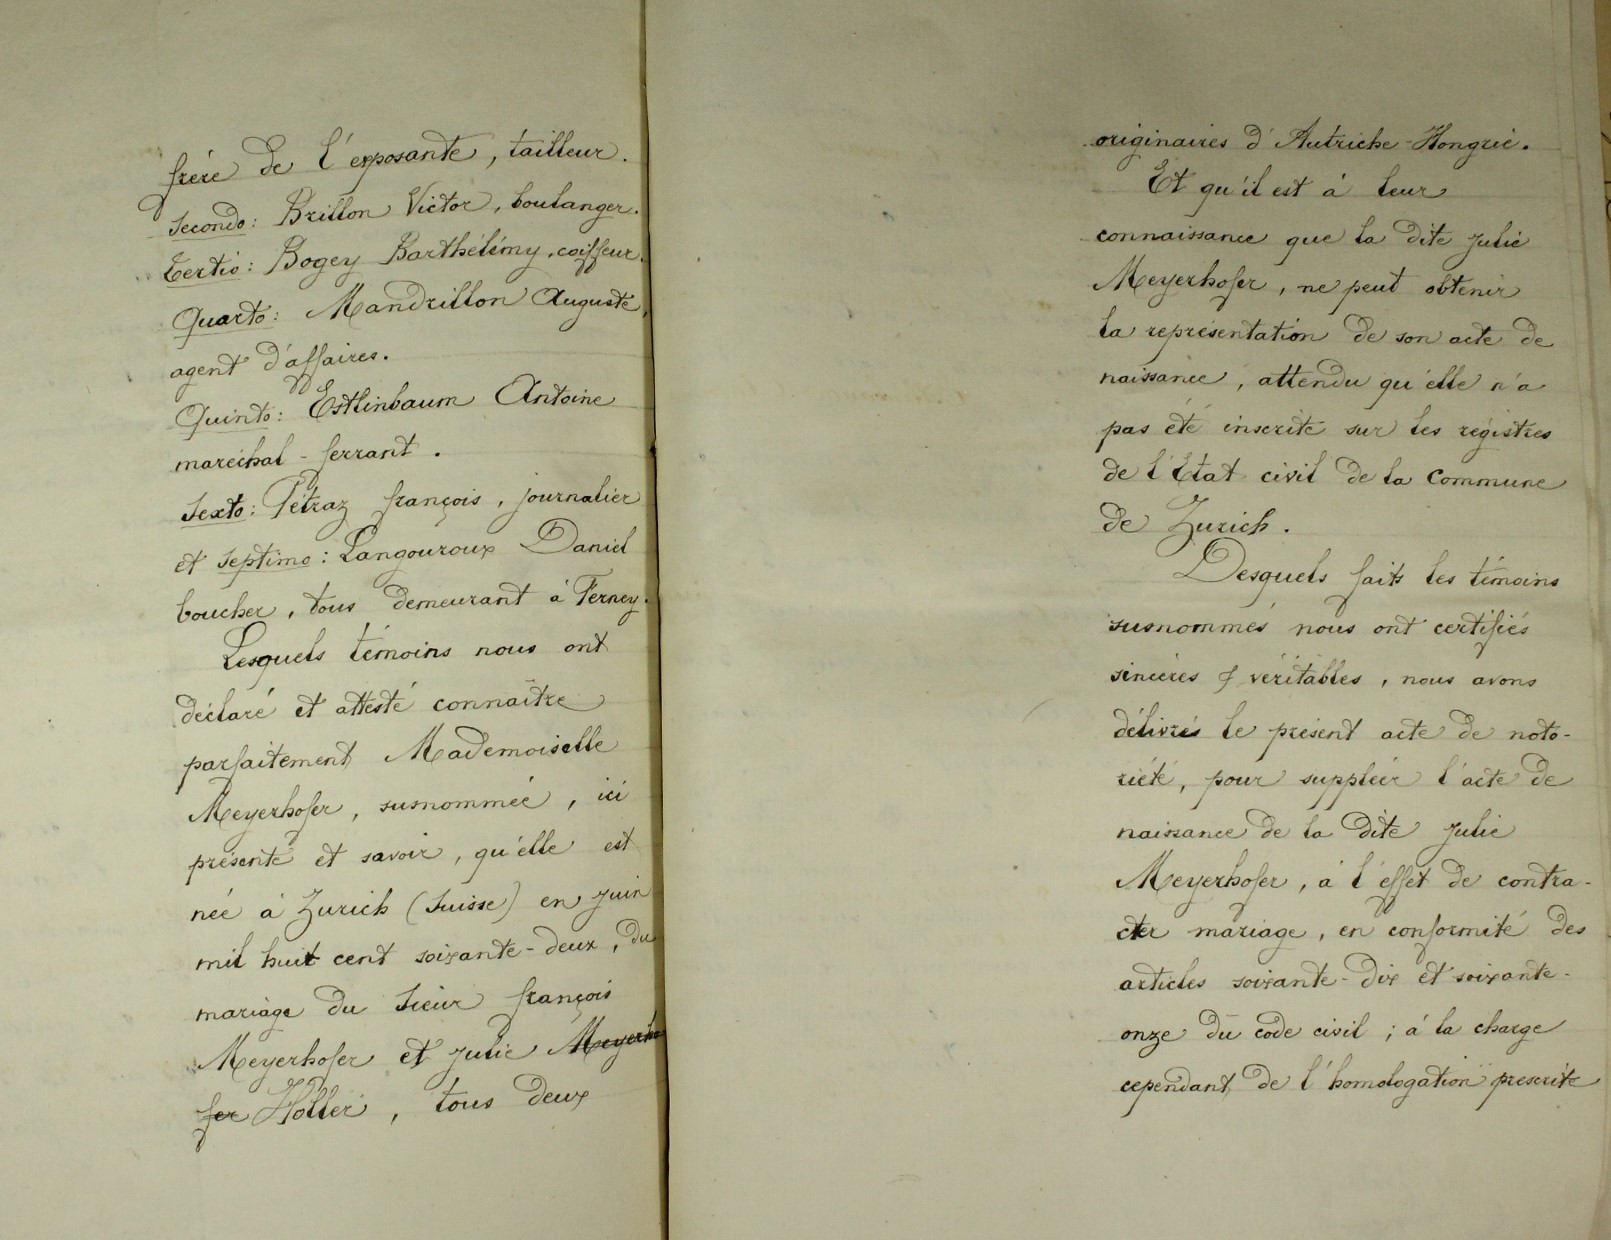 frère de l'exposante, tailleur.
Secondo: Brillon Victor, boulanger.
Tertio: Bogey Barthélémy, coiffeur.
Quarto: Mandrillon Auguste,
agent d'affaires.
Quinto: Estlinbaum Antoine
maréchal-ferrant.
Sexto: Pétraz françois, journalier
et Septimo: Langouroux Daniel
boucher, tous demeurant à Ferney.
Lesquels témoins nous ont
déclaré et attesté connaître
parfaitement Mademoiselle
Meyerhofer, susnommée, ici
présente et savoir, qu'elle est
née à Zurich (Suisse) en juin
mil huit cent soixante-deux, du
mariage du Sieur françois
Meyerhofer et julie Meyerho
fer Holler, tous deux
originaires d'Autriche-Hongrie.
Et qu'il est à leur
connaissance que la dite julie
Meyerhofer, ne peut obtenir
la représentation de son acte de
naissance, attendu qu'elle n'a
pas été inscrite sur les régistres
de l'Etat civil de la Commune
de Zurich.
Desquels faits les témoins
susnommés nous ont certifiés
sincères & véritables, nous avons
délivrés le présent acte de noto-
riété, pour suppléer l'acte de
naissance de la dite julie
Meyerhofer, à l'effet de contra-
cter mariage, en conformité des
articles soixante-dix et soixante-
onze du code civil; à la charge
cependant de l'homologation prescrite